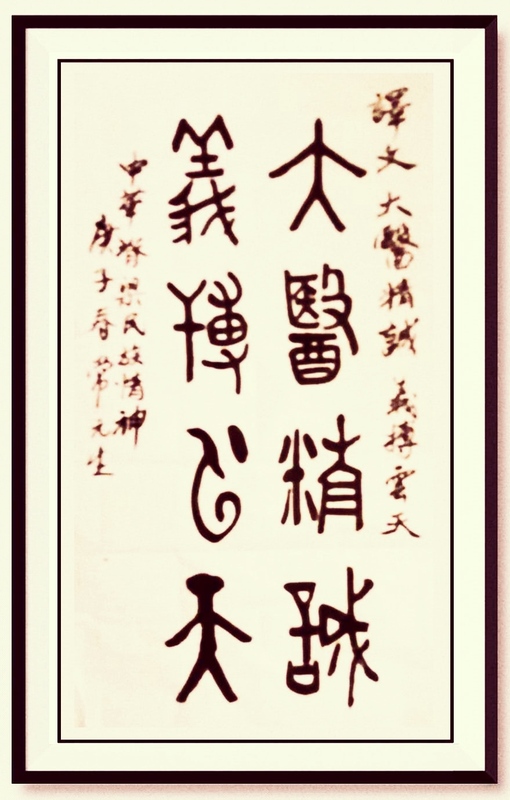 譯文 大醫精誠 義搏雲天
大醫精誠
義搏云天
中華脊梁民族精神
庚子春 常元生